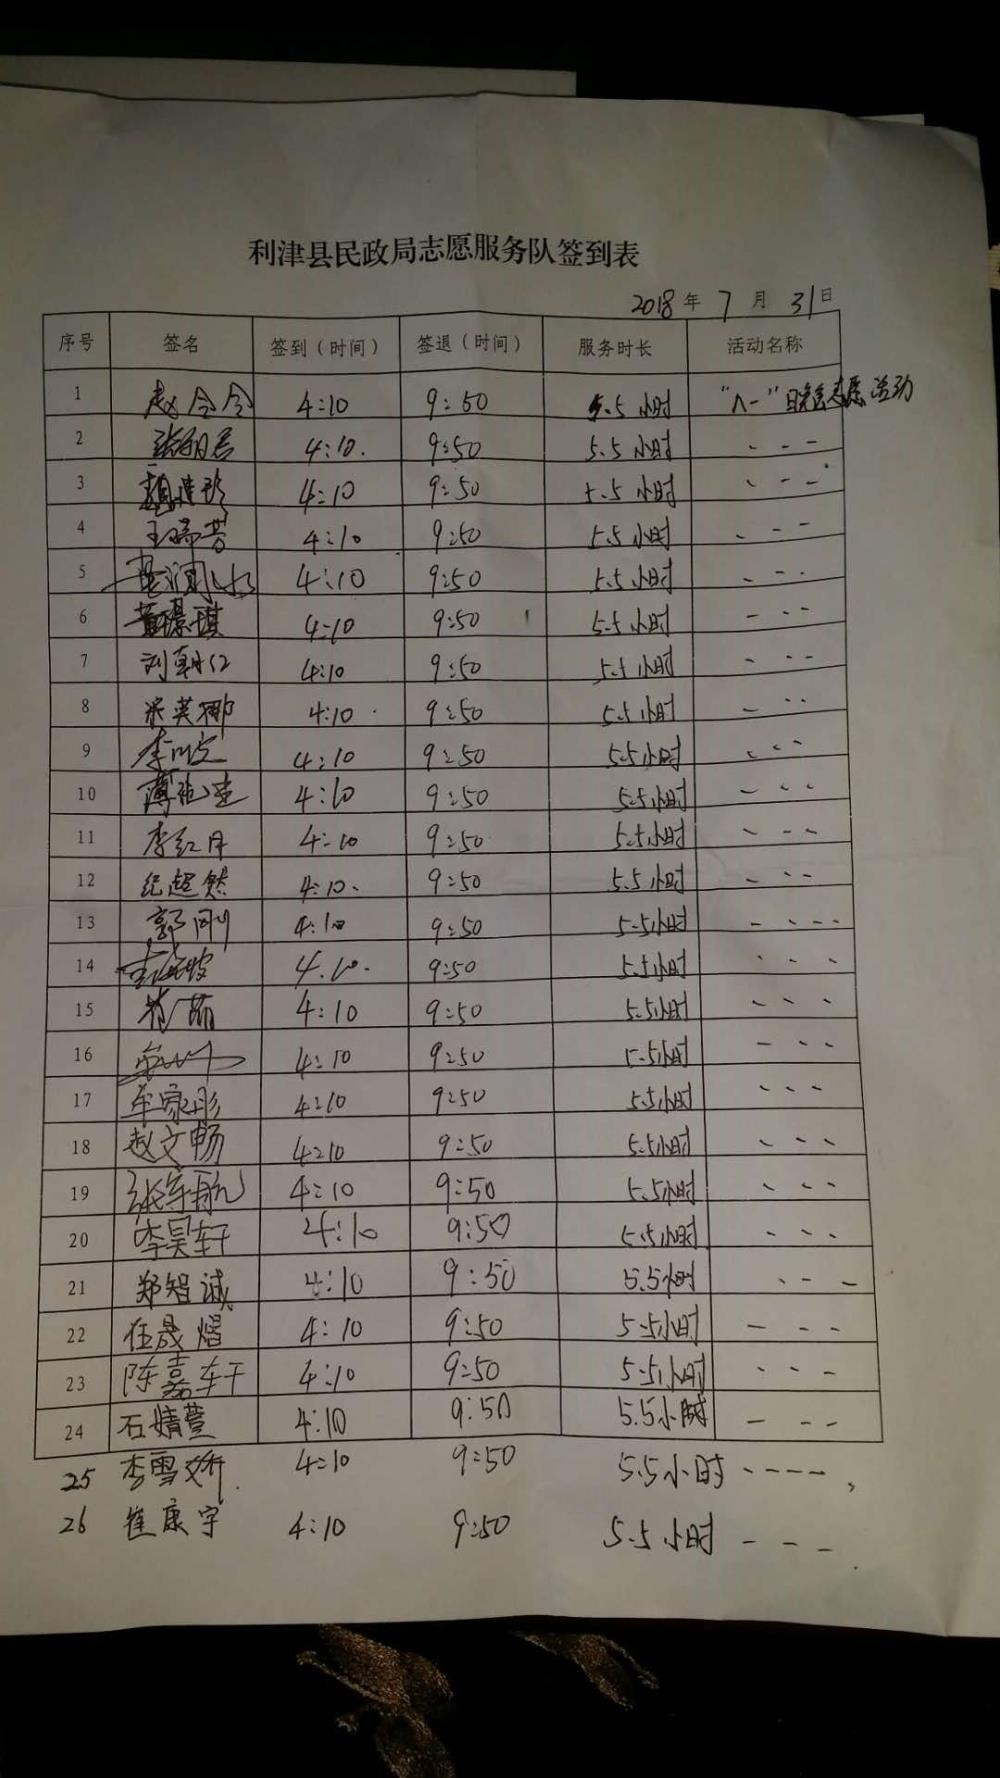 利津县民政局志愿服务队签到表
2018 年 7 月 31 日
序号 签名 签到（时间） 签退（时间） 服务时长 活动名称
1 赵令令 4:10 9:50 5.5小时 "八一"晚会志愿活动
2 4:10. 9:50 5.5小时 - - -
3 4:10 9:50 5.5小时 - - -
4 王瑞芳 4:10 9:50 5.5小时 - - -
5 4:10 9:50 5.5小时 - - -
6 董璟琪 4:10 9:50 5.5小时 - - -
7 刘朝仁 4:10 9:50 5.5小时 - - -
8 宋英娜 4:10 9:50 5.5小时 - - -
9 4:10 9:50 5.5小时 - - -
10 4:10 9:50 5.5小时 - - -
11 李红月 4:10 9:50 5.5小时 - - -
12 纪超然 4:10. 9:50 5.5小时 - - -
13 郭刚 4:10 9:50 5.5小时 - - - -
14 4:10. 9:50 5.5小时 - - -
15 4:10 9:50 5.5小时 - - -
16 4:10 9:50 5.5小时 - - -
17 牟家彤 4:10 9:50 5.5小时 - - -
18 赵文畅 4:10 9:50 5.5小时 - - -
19 张宇航 4:10 9:50 5.5小时 - - -
20 李昊轩 4:10 9:50 5.5小时 - - -
21 郑智诚 4:10 9:50 5.5小时 - - -
22 任晟熠 4:10 9:50 5.5小时 - - -
23 陈嘉轩 4:10 9:50 5.5小时 - - -
24 石婧萱 4:10 9:50 5.5小时 - - -
25 李雪娇 4:10 9:50 5.5小时 - - - -
26 崔康宇 4:10 9:50 5.5小时 - - -